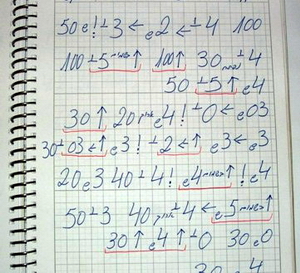 50 e! ± 3 ← e 2 ← ± 4 100
100 ± 5 ↑ 100 ↑ 30 ± 4
50 ± 5 ↑ e 4
30 ↑ 20 e 4! ± 0 ← e 03
30 ± 03 ← ↑ e 3! ± 2 ← ↑ e 3 ← e 3
20 e 3 40 ± 4! e 4 ↑ ! e 4
50 ± 3 40 ± 4 ← e 5 ↑
30 ↑ e 4 ↑ ± 0 30 e 0